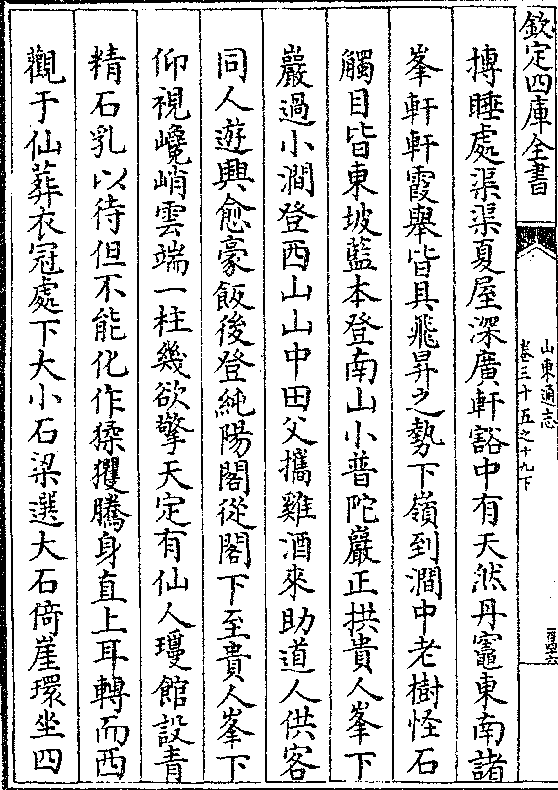 欽定四庫全書
山東通志
卷三十五之十九下
摶睡處渠渠夏屋深廣軒豁中有天然丹竈東南諸
峯軒軒霞舉皆具飛昇之勢下嶺到澗中老樹怪石
觸目皆東坡藍本登南山小普陀巖正拱貴人峯下
巖過小澗登西山山中田父攜雞酒來助道人供客
同人遊興愈豪飯後登純陽閣從閣下至貴人峯下
仰視巉峭雲端一柱幾欲擎天定有仙人瓊館設青
精石乳以待但不能化作猱玃騰身直上耳轉而西
觀于仙葬衣冠處下大小石梁選大石倚崖環坐四